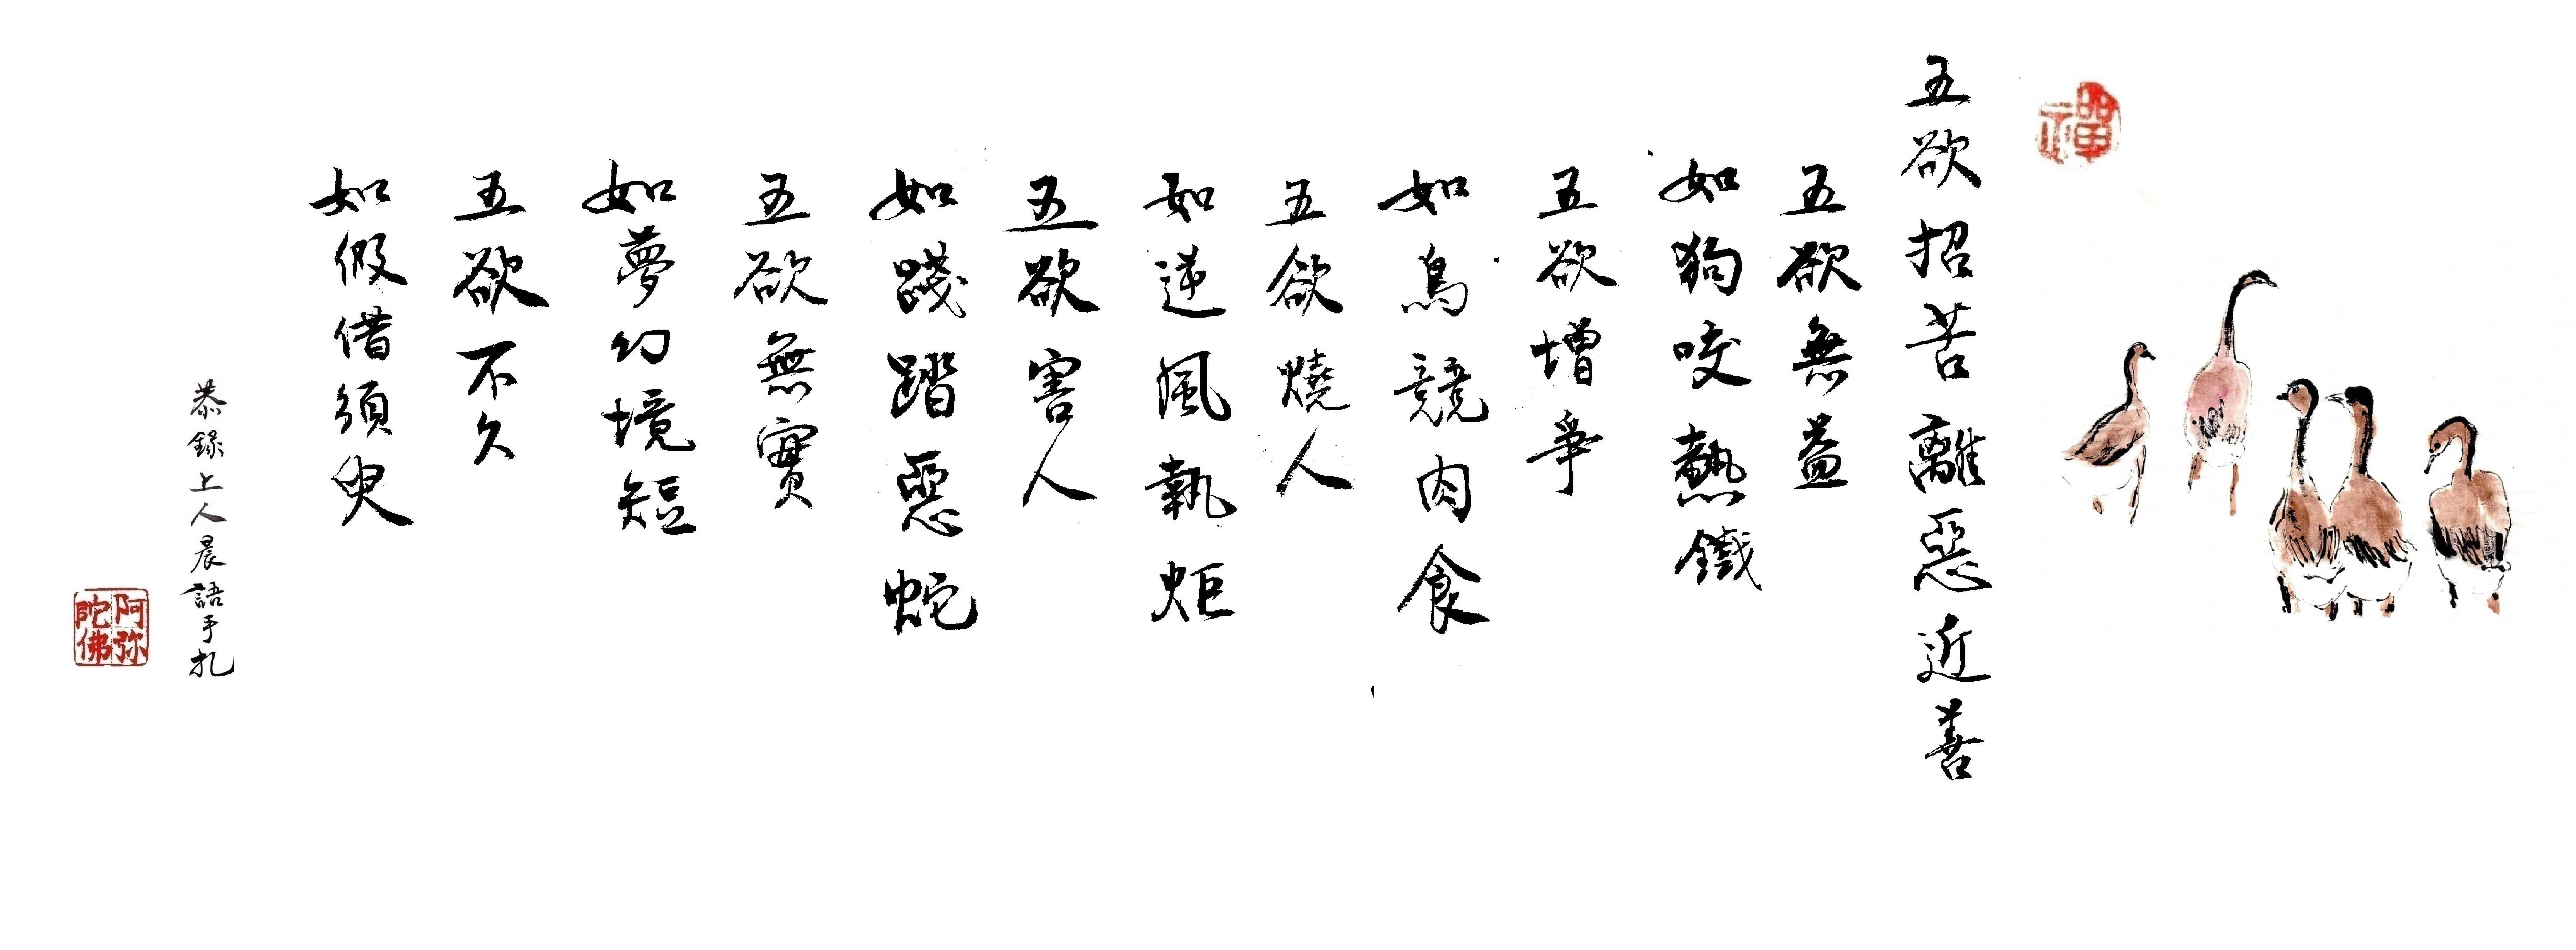 禪
五欲招苦離惡近善
五欲無益
如狗咬熱鐵
五欲增爭
如鳥競肉食
五欲燒人
如逆風執炬
五欲害人
如踐踏惡蛇
五欲無實
如夢幻境短
五欲不久
如假借須臾
恭錄上人晨語手札
阿弥
陀佛